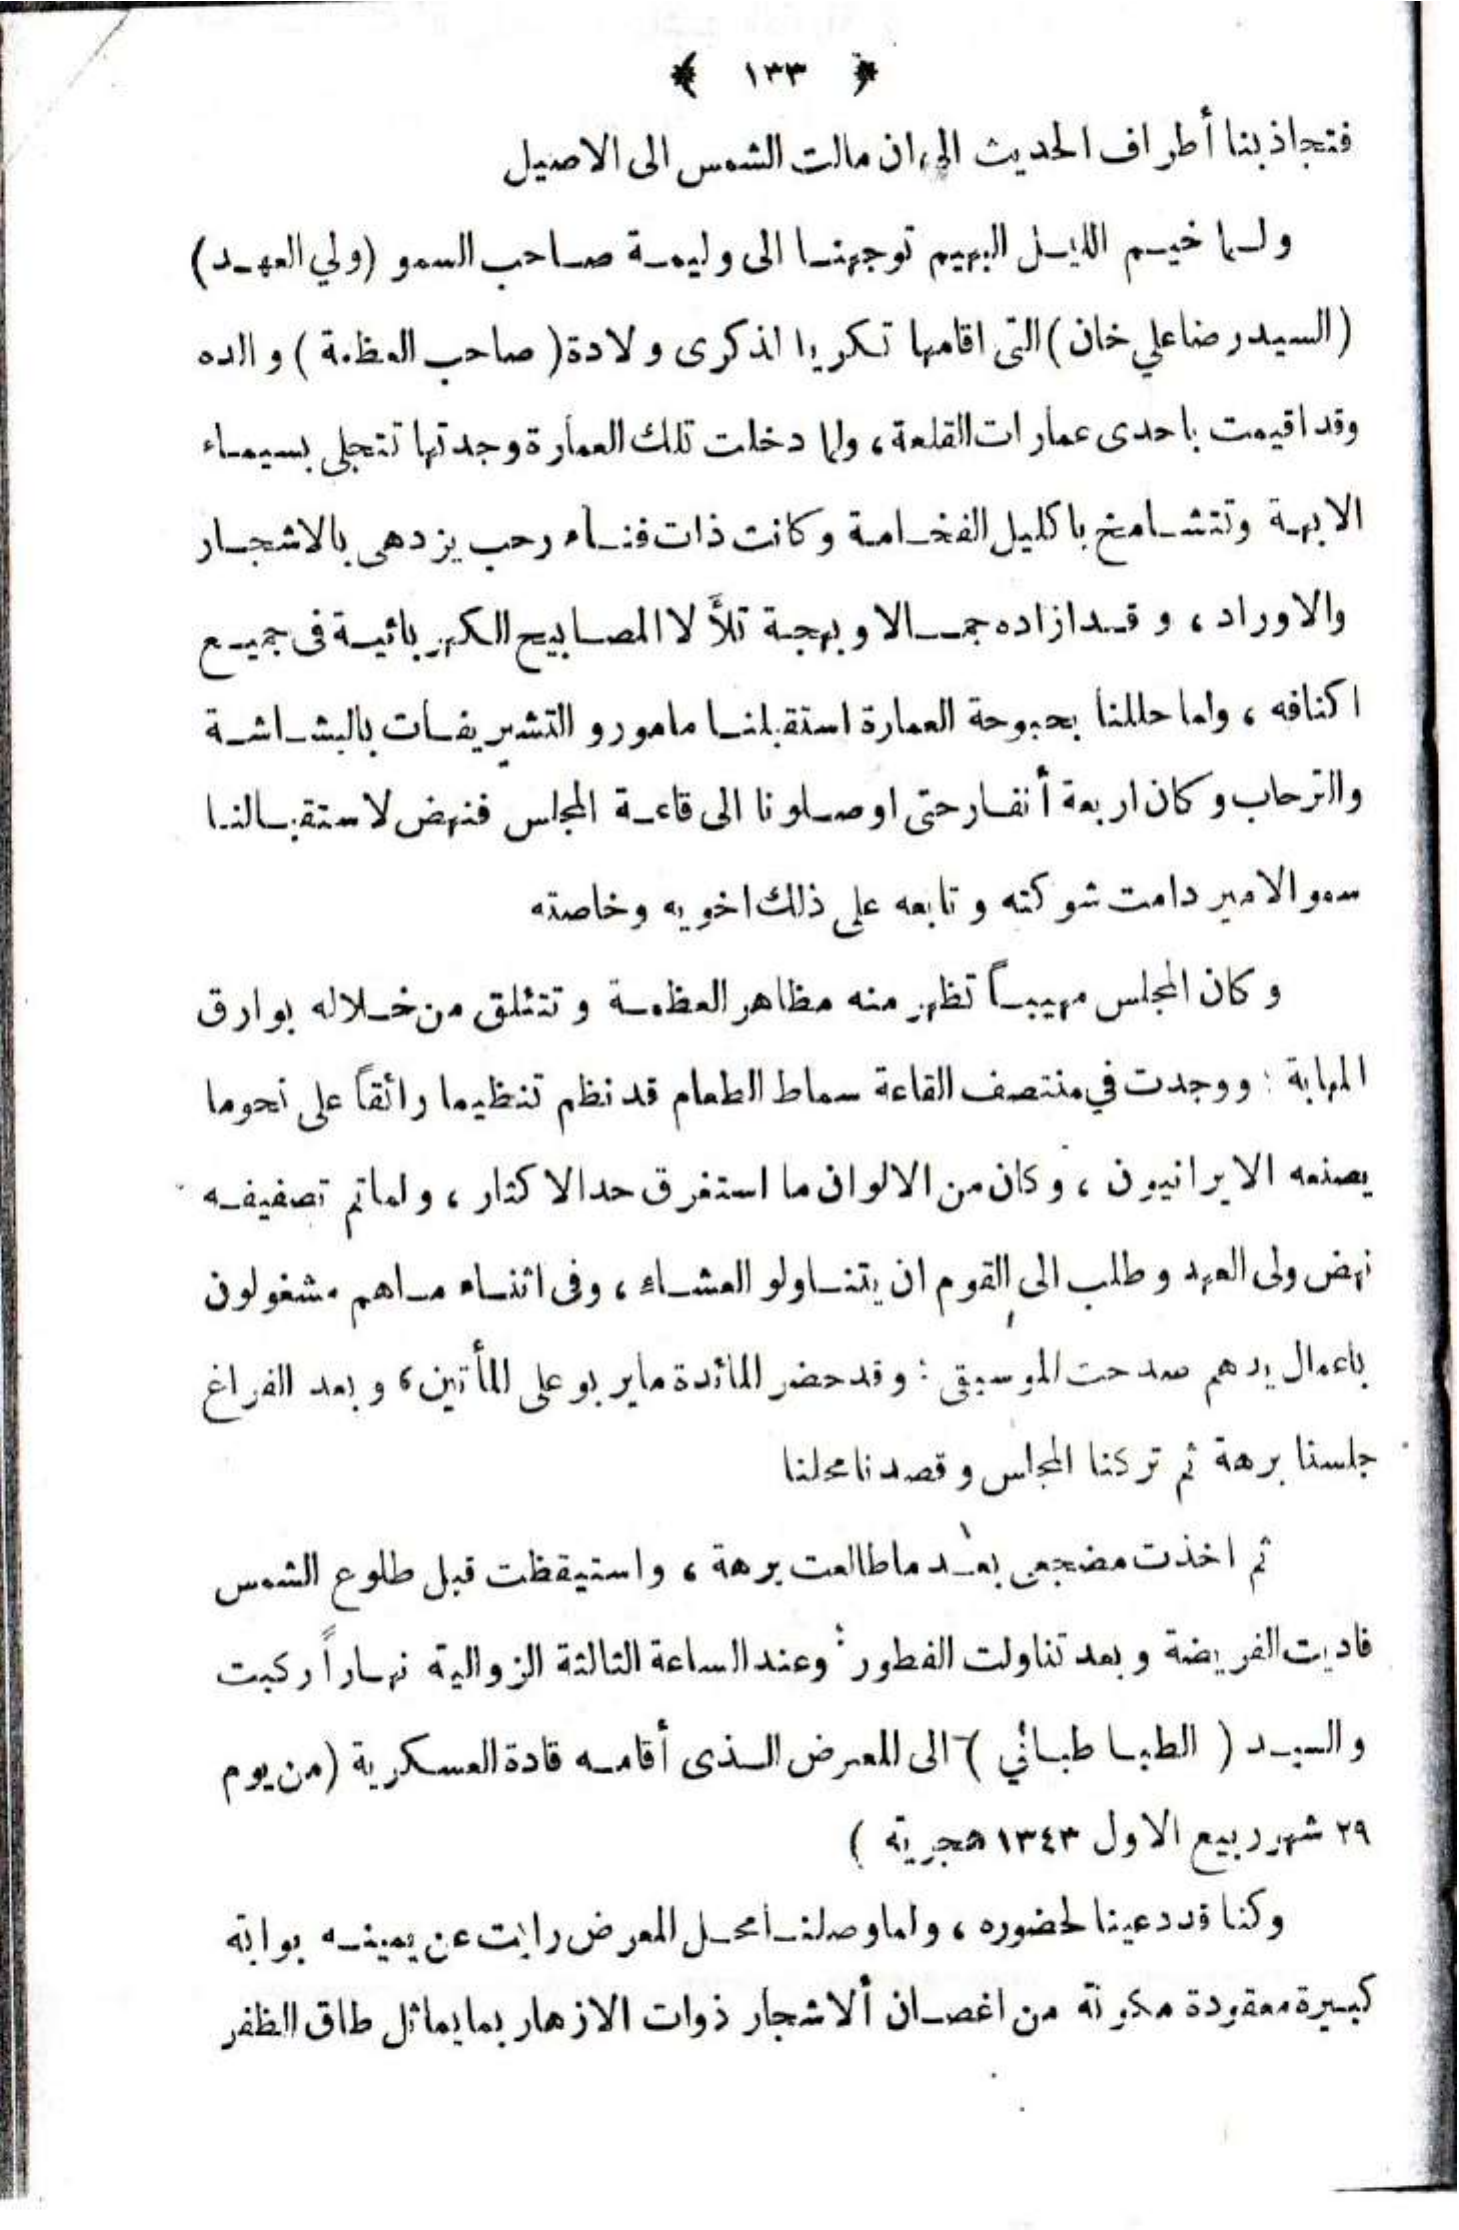 ١٣٣
فتجاذبنا أطراف الحديث الى ان مالت الشمس الى الاصيل
ولما خيم الليل البهيم توجهنا الى وليمة صاحب السمو (ولي العهد)
(السيد رضا علي خان) التى اقامها تكريما لذكرى ولادة (صاحب العظمة) والده
وقد اقيمت باحدى عمارات القلعة ، ولما دخلت تلك العمارة وجدتها تتجلى بسيماء
الابهة وتتشامخ باكليل الفخامة وكانت ذات فناء رحب يزدهى بالاشجار
والاوراد ، وقد ازاده جمالا وبهجة تلألا المصابيح الكهربائية فى جميع
اكنافه ، ولما حللنا بحبوحة العمارة استقبلنا مامورو التشريفات بالبشاشة
والترحاب وكان اربعة أنفار حتى اوصلونا الى قاعة المجلس فنهض لاستقبالنا
سمو الامير دامت شوكته وتابعه على ذلك اخويه وخاصته
وكان المجلس مهيباً تظهر منه مظاهر العظمة وتتئلق من خلاله بوارق
المهابة : ووجدت في منتصف القاعة سماط الطعام قد نظم تنظيما رائقاً على نحوما
يصنعه الايرانيون ، وكان من الالوان ما استغرق حد الاكثار ، ولما تم تصفيفه
نهض ولى العهد وطلب الى القوم ان يتناولو العشاء ، وفى اثناء ماهم مشغولون
باعمال يدهم صدحت الموسيقى : وقد حضر المائدة ما يربو على المأتين ، وبعد الفراغ
جلسنا برهة ثم تركنا المجلس وقصدنا محلنا
ثم اخذت مضجعى بعد ما طالعت برهة ، واستيقظت قبل طلوع الشمس
فاديت الفريضة وبعد تناولت الفطور : وعند الساعة الثالثة الزوالية نهاراً ركبت
والسيد ( الطبا طبائي ) الى المعرض الذى أقامه قادة العسكرية (من يوم
٢٩ شهر ربيع الاول ١٣٤٣ هجرية )
وكنا قد دعينا لحضوره ، ولما وصلنا محل المعرض رايت عن يمينه بوابة
كبيرة معقودة مكونة من اغصان ألاشجار ذوات الازهار بما يماثل طاق الظفر